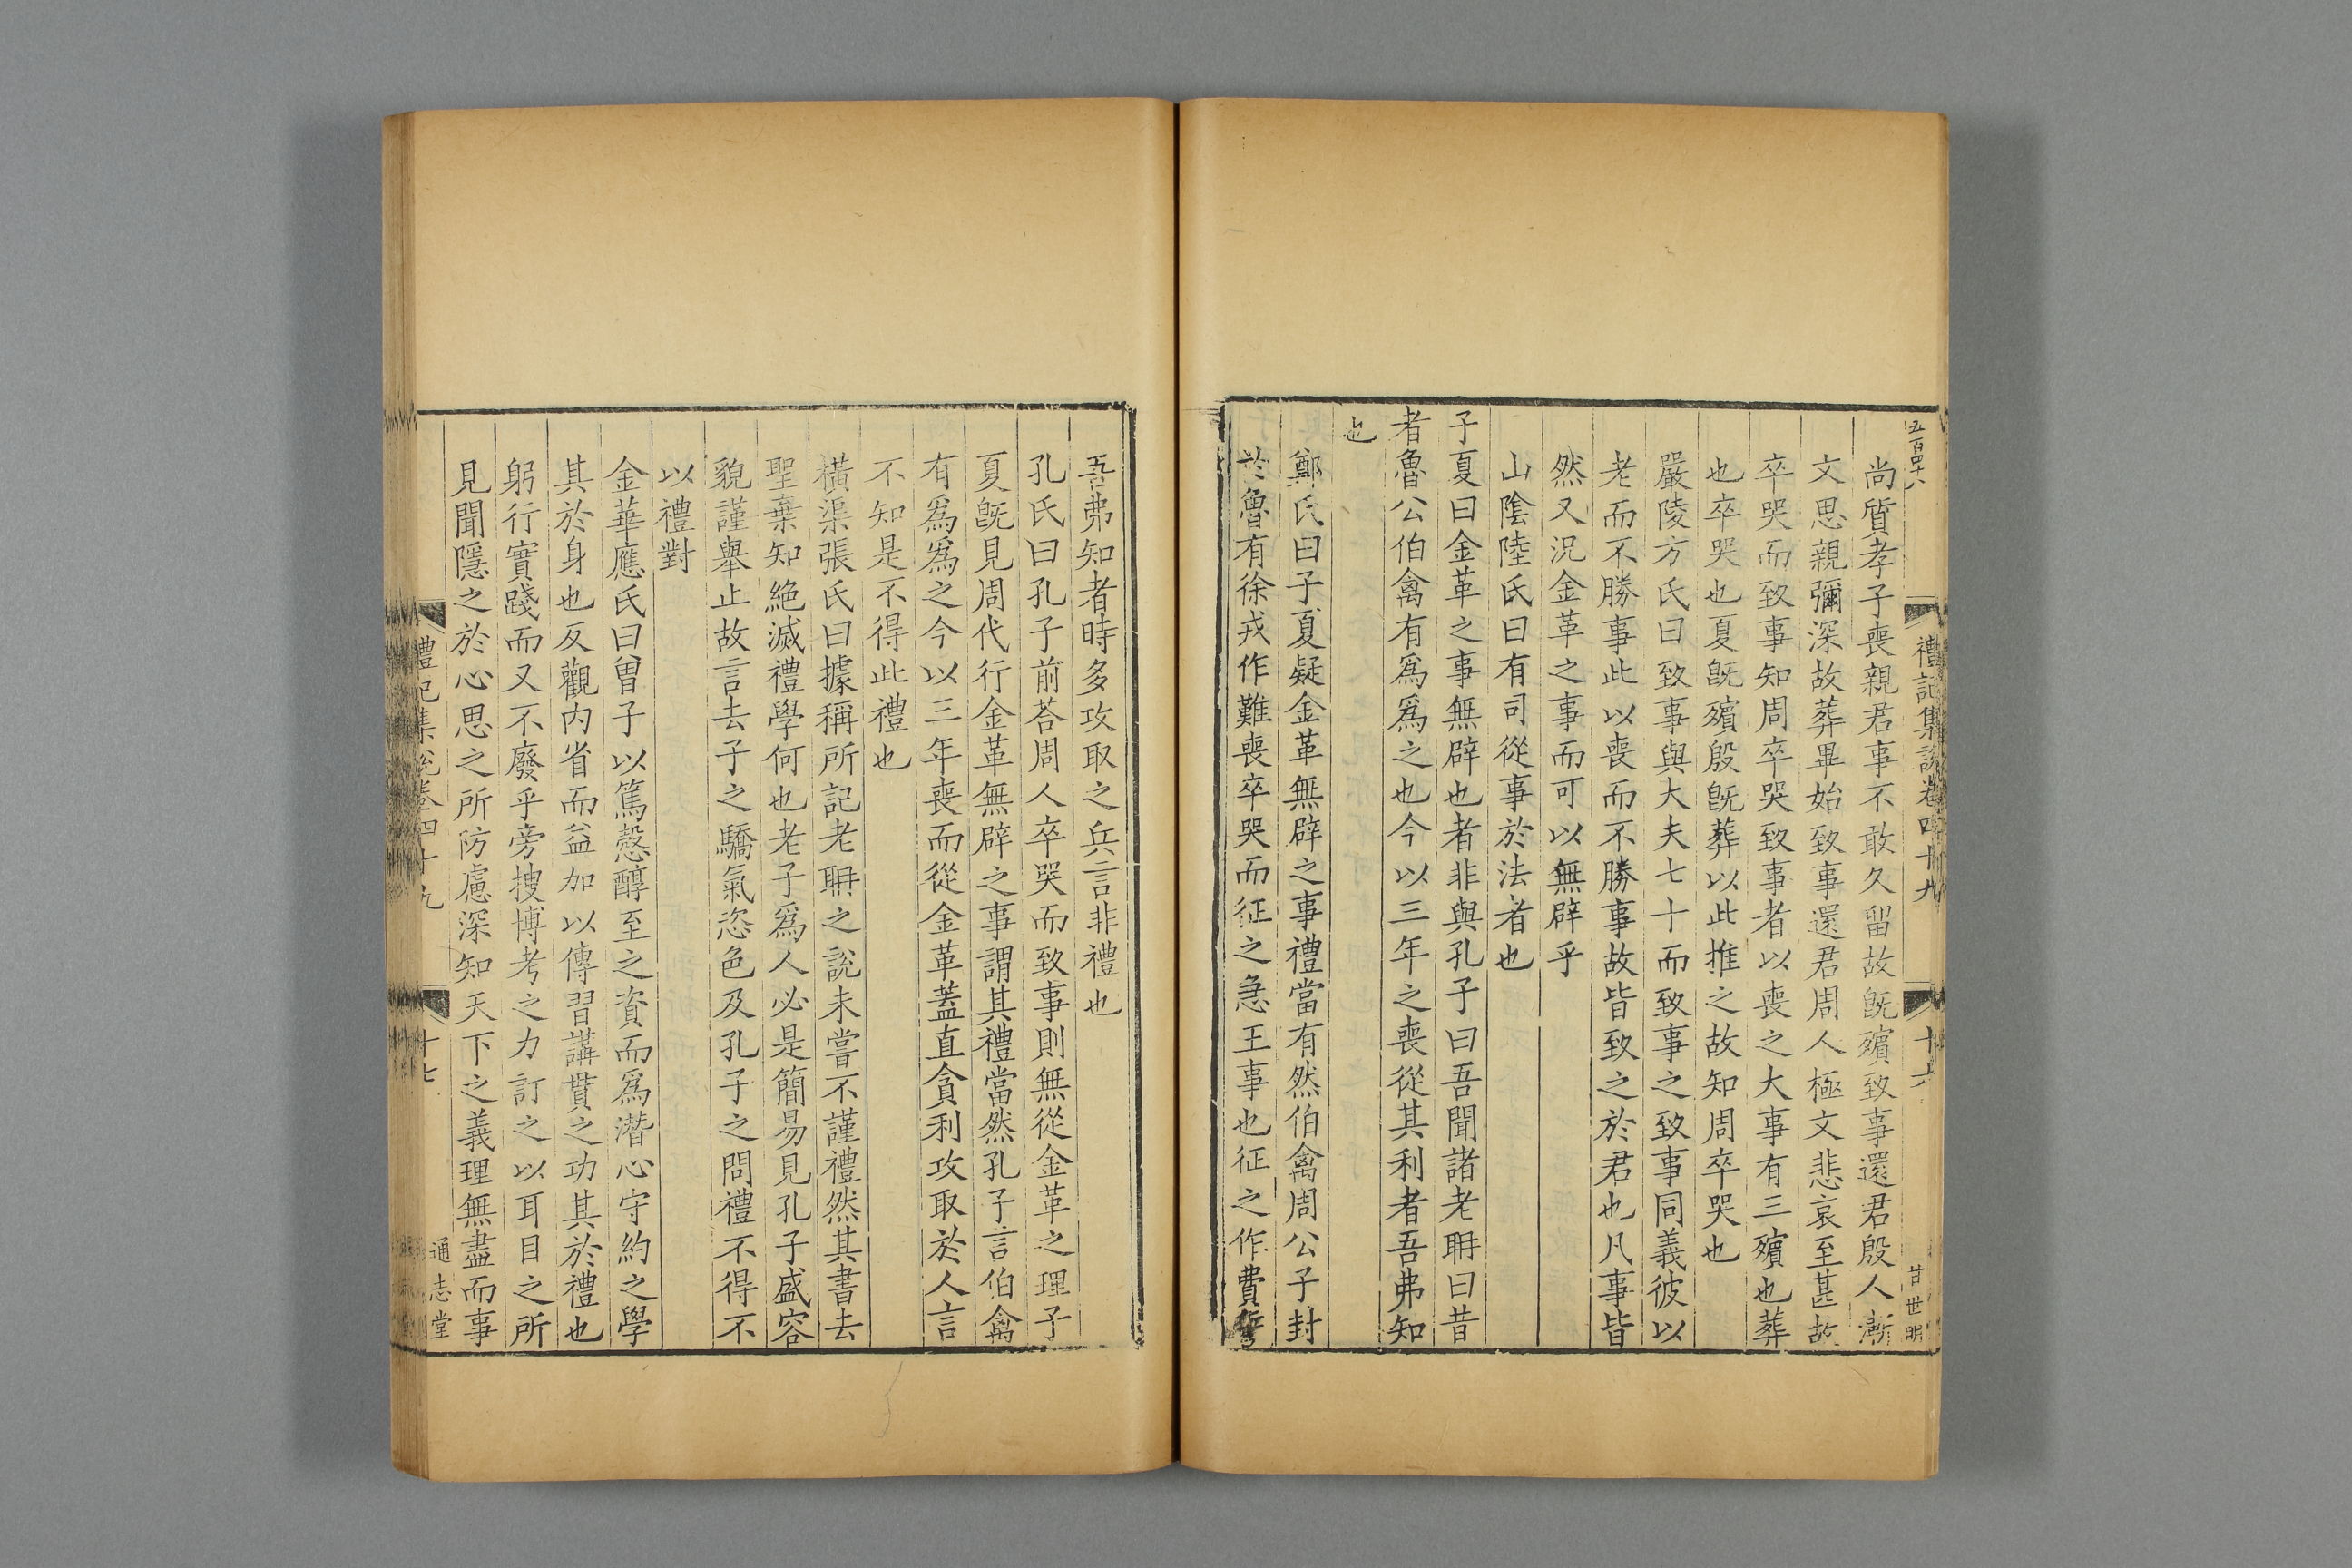 五百四十八
禮記集說卷四十九
十六
甘世明
尚質孝子喪親君事不敢久留故旣殯致事還君殷人漸
文思親彌深故葬畢始致事還君周人極文悲哀至甚故
卒哭而致事知周卒哭致事者以喪之大事有三殯也葬
也卒哭也夏旣殯殷旣葬以此推之故知周卒哭也
嚴陵方氏曰致事與大夫七十而致事之致事同義彼以
老而不勝事此以喪而不勝事故皆致之於君也凡事皆
然又況金革之事而可以無辟乎
山陰陸氏曰有司從事於法者也
子夏曰金革之事無辟也者非與孔子曰吾聞諸老聃曰昔
者魯公伯禽有爲爲之也今以三年之喪從其利者吾弗知
也
鄭氏曰子夏疑金革無辟之事禮當有然伯禽周公子封
於魯有徐戎作難喪卒哭而征之急王事也征之作費誓
吾弗知者時多攻取之兵言非禮也
孔氏曰孔子前荅周人卒哭而致事則無從金革之理子
夏旣見周代行金革無辟之事謂其禮當然孔子言伯禽
有爲爲之今以三年喪而從金革蓋直貪利攻取於人言
不知是不得此禮也
橫渠張氏曰據稱所記老聃之說未嘗不謹禮然其書去
聖棄知絶滅禮學何也老子爲人必是簡易見孔子盛容
貌謹舉止故言去子之驕氣恣色及孔子之問禮不得不
以禮對
金華應氏曰曾子以篤慤醇至之資而爲潛心守約之學
其於身也反觀內省而益加以傳習講貫之功其於禮也
躬行實踐而又不廢乎旁搜博考之力訂之以耳目之所
見聞隱之於心思之所防慮深知天下之義理無盡而事
禮記集說卷四十九
十七
通志堂